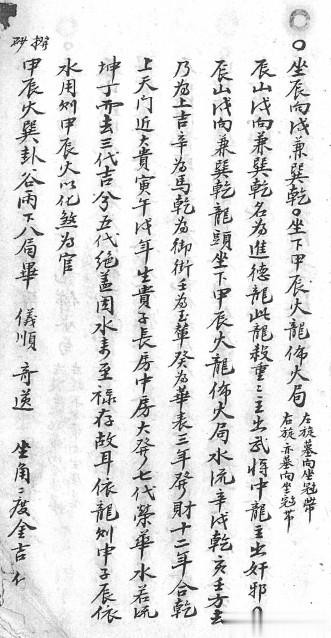 ○坐辰向戌兼巽乾○坐下甲辰火龍佈火局
左旋墓向坐冠帶
右旋亦墓向坐冠帶
辰山戌向兼巽乾名為進德龍此龍殺重々主出武將中龍主出奸邪○
辰山戌向兼巽乾龍頭坐下甲辰火龍佈火局水流辛戌乾亥壬方去
乃為上吉辛為馬乾為御街壬為玉輦癸為華表三年發財十二年合乾
上天门近大貴寅午戌年生貴子長房中房大發七代榮華水若流
坤丁而去三代吉兮五代絕盖因水来至祿存故耳依龍则申子辰依
水用则甲辰火以化煞為官
甲辰火巽卦谷雨下八局畢 儀順 奇逆 坐角二度金吉